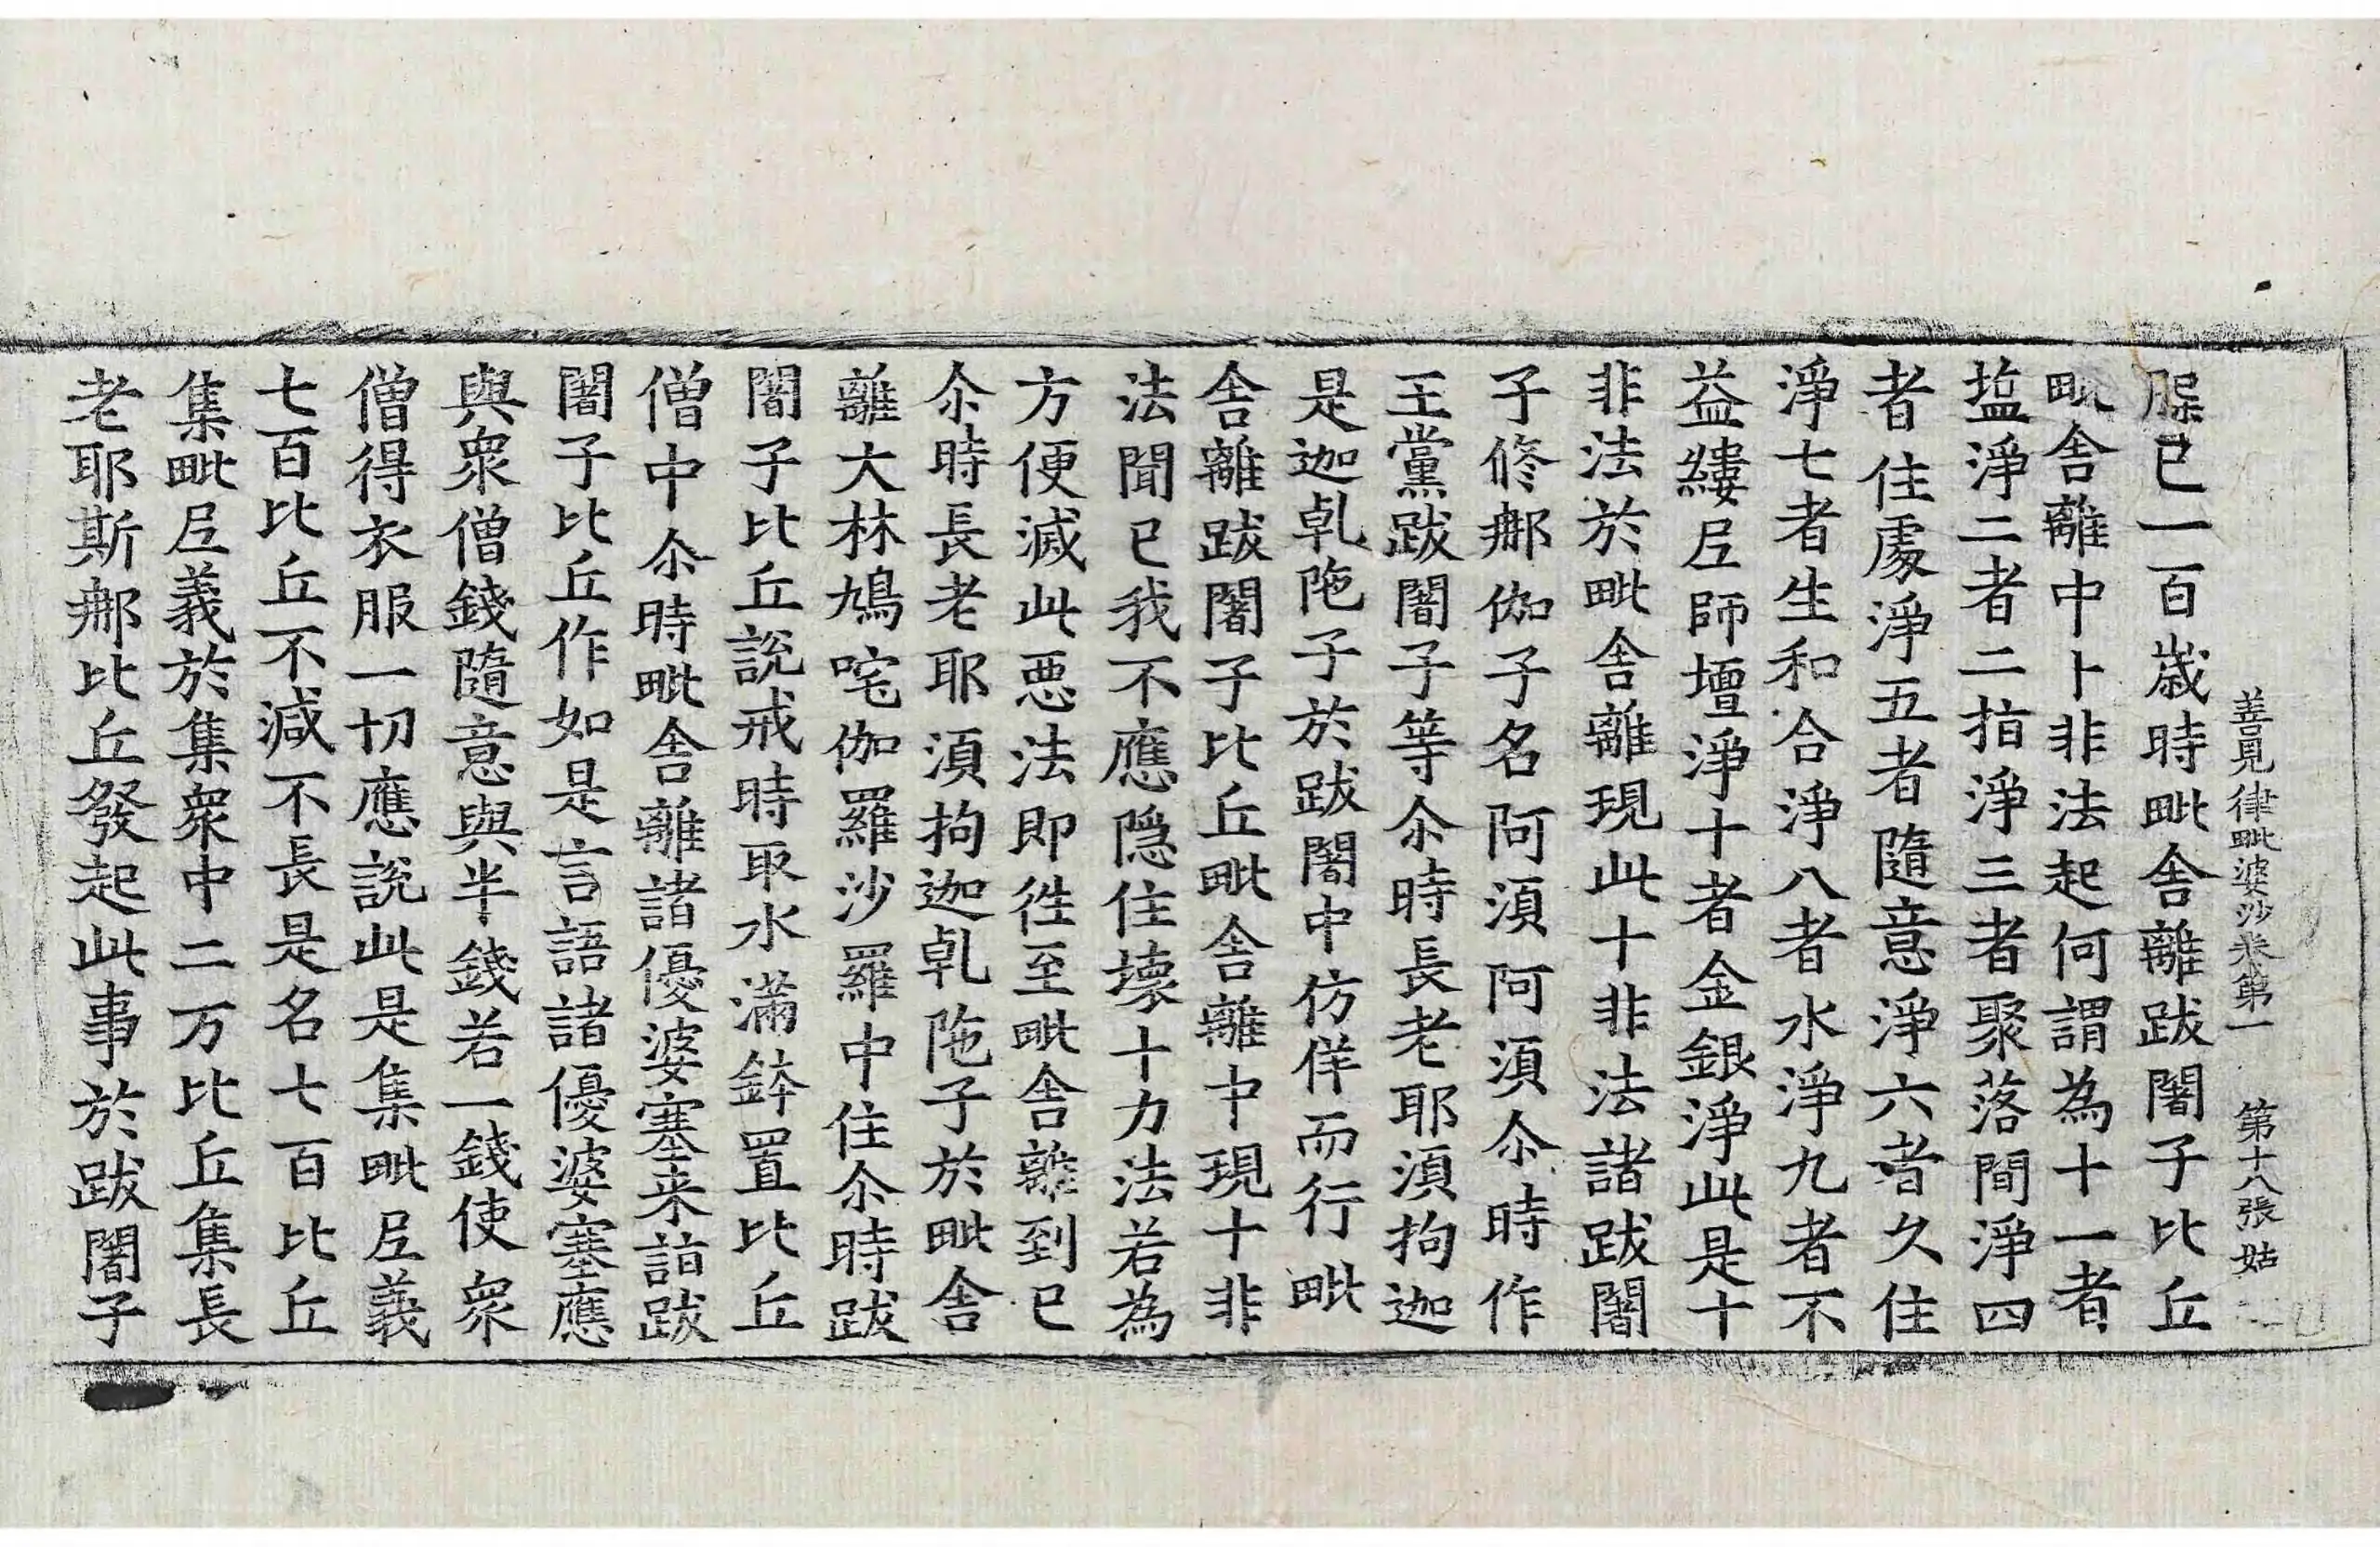 善見律毗婆沙卷第一 第十八張 姑
槃已一百歲時毗舍離跋闍子比丘
毗舍離中卜非法起何謂為十一者
塩淨二者二指淨三者聚落間淨四
者住處淨五者隨意淨六者久住
淨七者生和合淨八者水淨九者不
益縷尼師壇淨十者金銀淨此是十
非法於毗舍離現此十非法諸跋闍
子修那伽子名阿須阿須尒時作
王黨跋闍子等尒時長老耶須拘迦
是迦乹陁子於跋闍中仿佯而行毗
舍離跋闍子比丘毗舍離中現十非
法聞已我不應隱住壞十力法若為
方便滅此悪法即徃至毗舍離到已
尒時長老耶須拘迦乹陁子於毗舍
離大林鳩咤伽羅沙羅中住尒時跋
闍子比丘說戒時取水滿鉢置比丘
僧中尒時毗舍離諸優婆塞来詣跋
闍子比丘作如是言語諸優婆塞應
與衆僧錢隨意與半錢若一錢使衆
僧得衣服一切應說此是集毗尼義
七百比丘不減不長是名七百比丘
集毗尼義於集衆中二万比丘集長
老耶斯那比丘發起此事於跋闍子